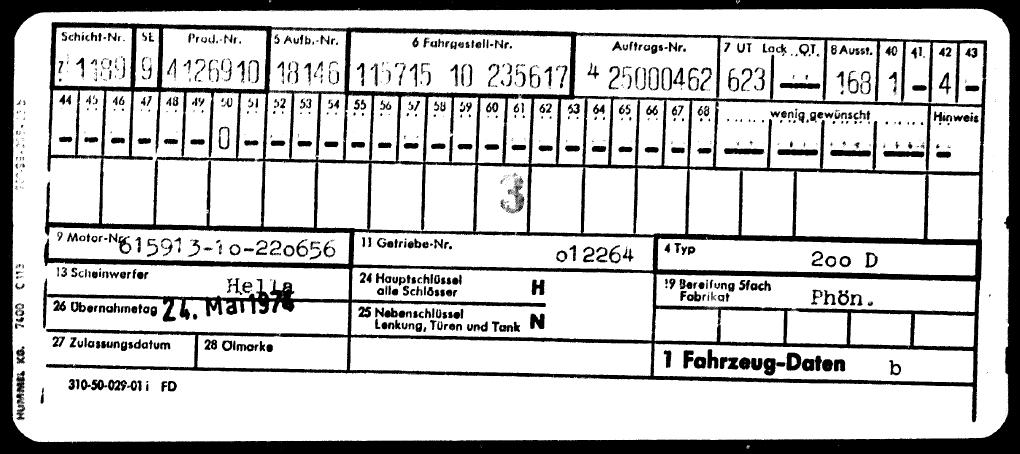 Schicht-Nr. SE Prod.-Nr. 5 Aufb.-Nr. 6 Fahrgestell-Nr. Auftrags-Nr. 7 UT Lack O.T. 8 Ausst. 40 41 42 43
1189 9 4126910 18146 115715 10 235617 4 25000462 623 -- 168 1 - 4 -
44 45 46 47 48 49 50 51 52 53 54 55 56 57 58 59 60 61 62 63 64 65 66 67 68 wenig gewünscht Hinweis
- - - - - - 0 - - - - - - - - - - - - - - - - - - -- -- -- -- -
3
9 Motor-Nr. 615913-10-220656 11 Getriebe-Nr. 012264 4 Typ 200 D
13 Scheinwerfer Hella 24 Hauptschlüssel alle Schlösser H 19 Bereifung 5fach Fabrikat Phön.
26 Übernahmetag 24. Mai 25 Nebenschlüssel Lenkung, Türen und Tank N
27 Zulassungsdatum 28 Ölmarke 1 Fahrzeug-Daten b
310-50-029-01 i FD
HUMMEL KG. 7400 C 113